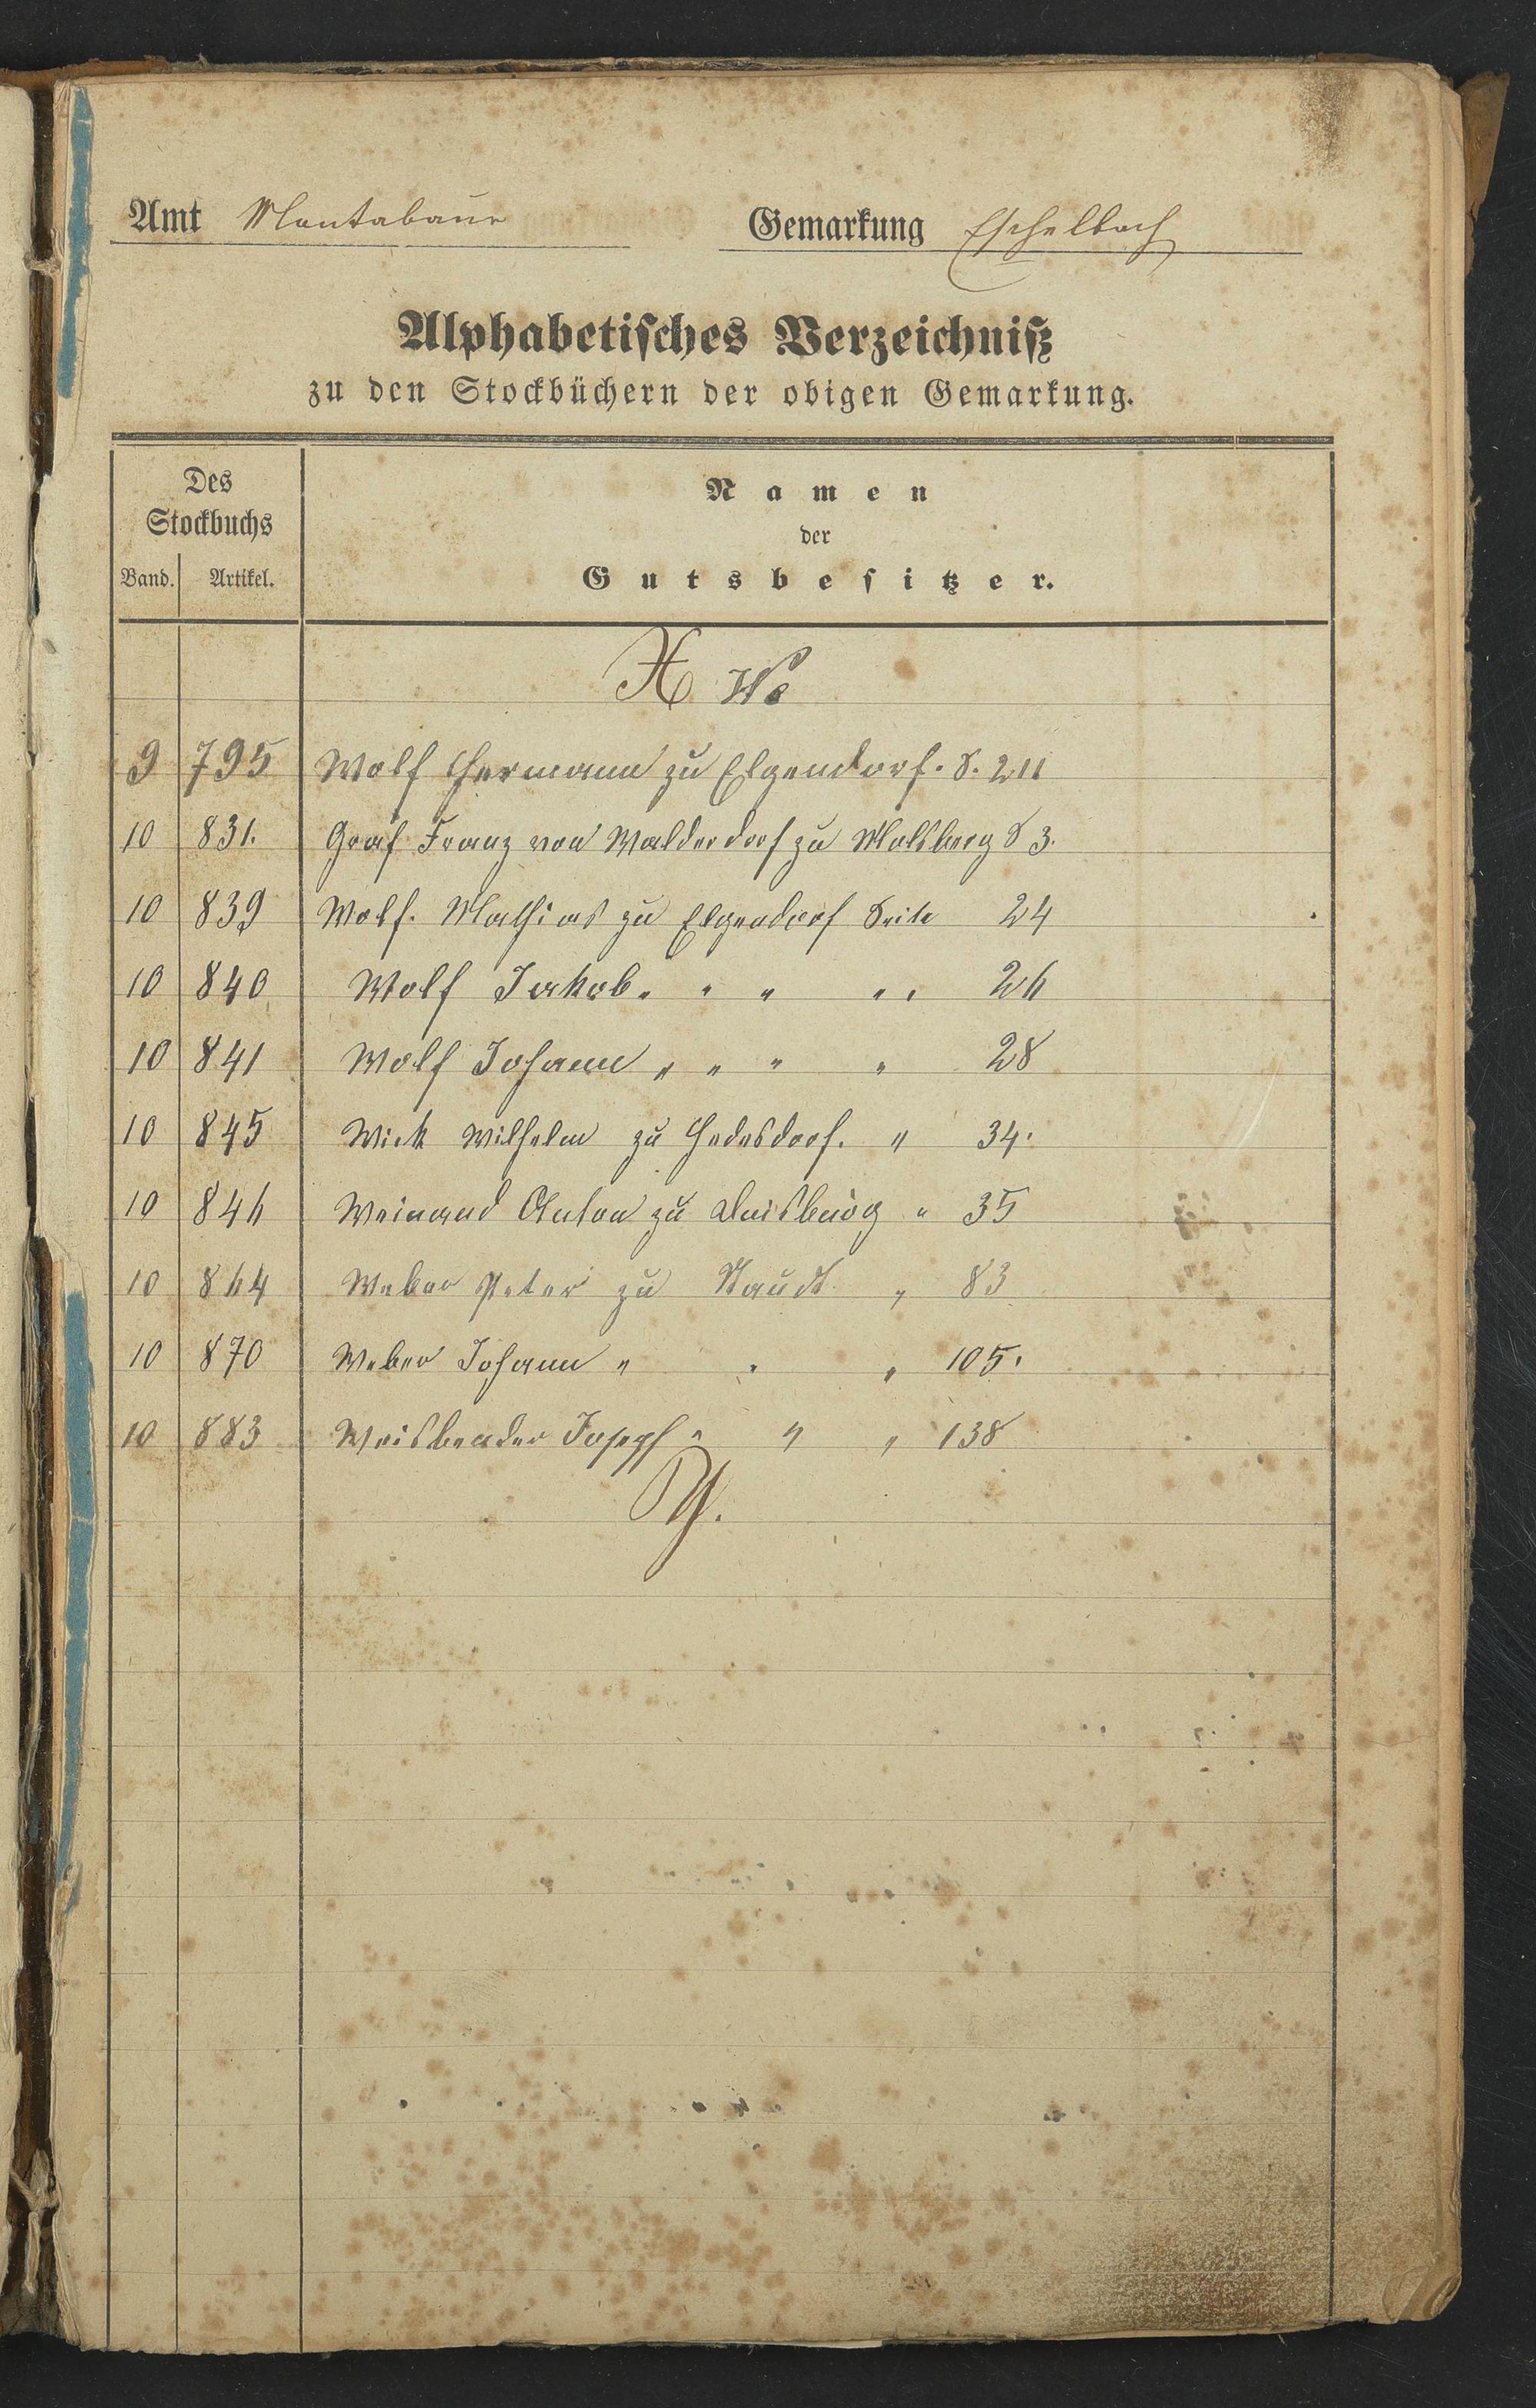 Amt Montabaur Gemarkung Eschelbach
Alphabetisches Verzeichniß
zu den Stockbüchern der obigen Gemarkung.
Des
Stockbuchs
Band. Artikel.
Namen
der
Gutsbesitzer.
X We
9 795 Wolf Hermann zu Elgendorf. S. 211
10 831. Graf Franz von Walderdorf zu Molsberg S 3.
10 839 Wolf. Mathias zu Elgendorf Seite 24
10 840 Wolf Jakob " " " " 26
10 841 Wolf Johann " " " " 28
10 845 Wick Wilhelm zu Hedesdorf. " 34.
10 846 Weinand Anton zu Duisburg " 35
10 864 Weber Peter zu Staudt " 83
10 870 Weber Johann " " " 105.
10 883 Weisbender Joseph " " " 138
Y.